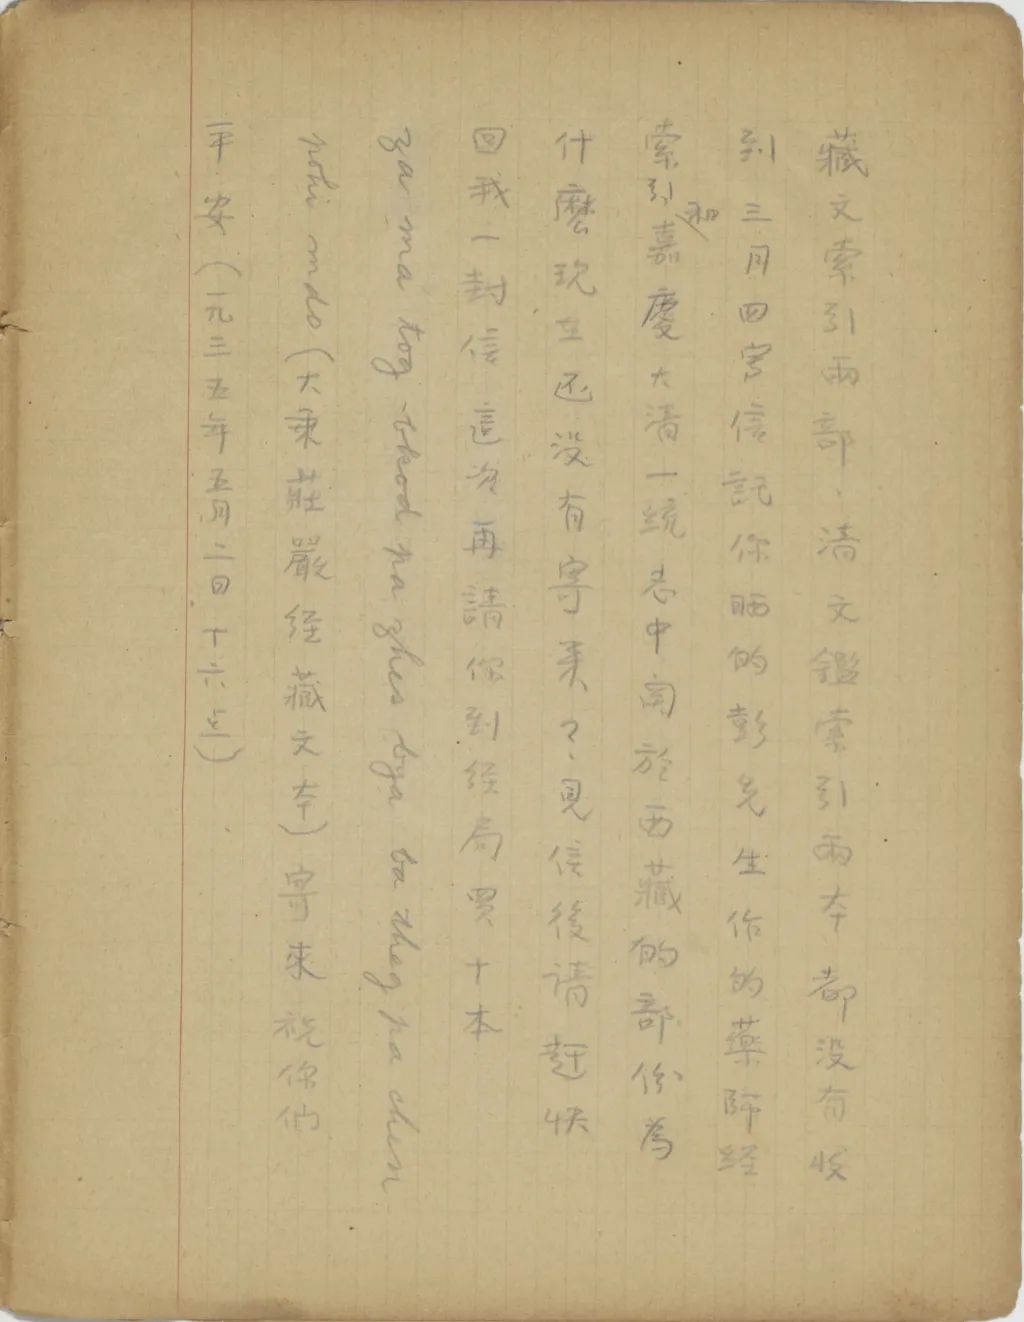 藏文索引兩部．清文鑑索引兩本都没有收
到三月四号信託你晒的彭先生作的藥師經
索引和嘉慶大清一統志中関於西藏的部份為
什麽現在还没有寄来？見信後請趕快
回我一封信這次再請你到经局買十本
za ma tog bkod pa zhes bya ba theg pa chen
pohi mdo（大乘莊嚴经藏文本）寄來 祝你们
平安（一九三五年五月二日十六点）